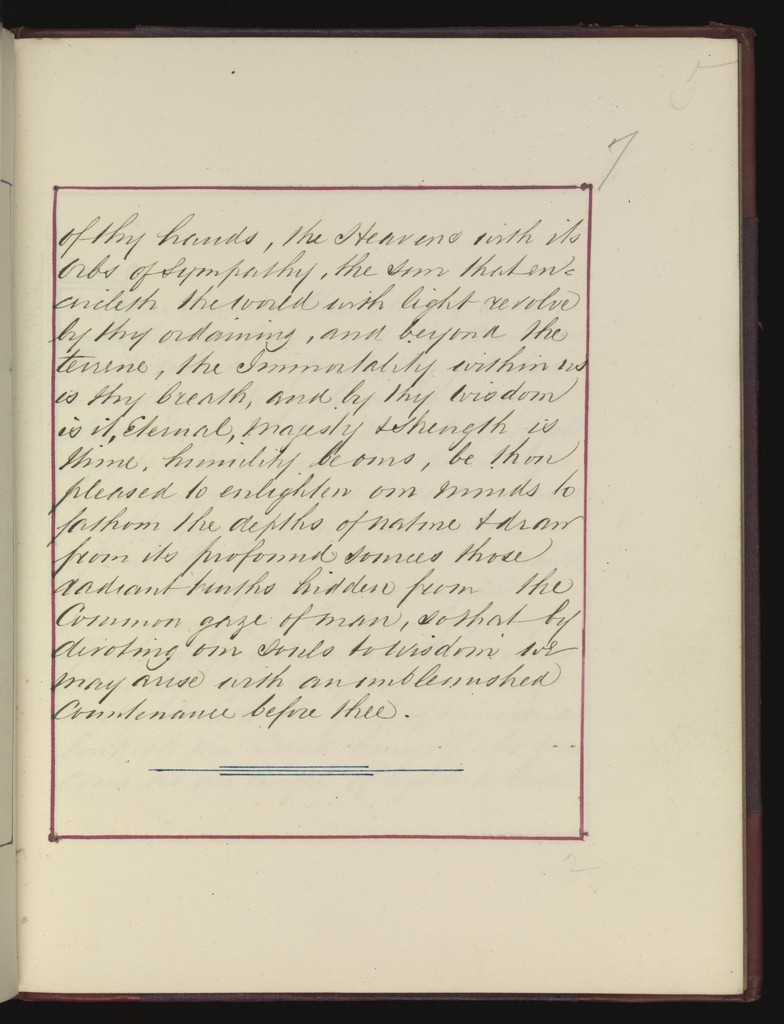 5
7
of thy hands, the Heavens with its
Orbs of Sympathy, the sun that en-
circleth the world with light revolve
by thy ordaining, and beyond the
terrene, the Immortality within us
is thy breath, and by thy wisdom
is it, Eternal, Majesty & Strength is
thine, humility be ours, be thou
pleased to enlighten our minds to
fathom the depths of nature & draw
from its profound sources those
radiant truths hidden from the
Common gaze of man, so that by
devoting our souls to wisdom we
may arise with an unblemished
Countenance before thee.
2